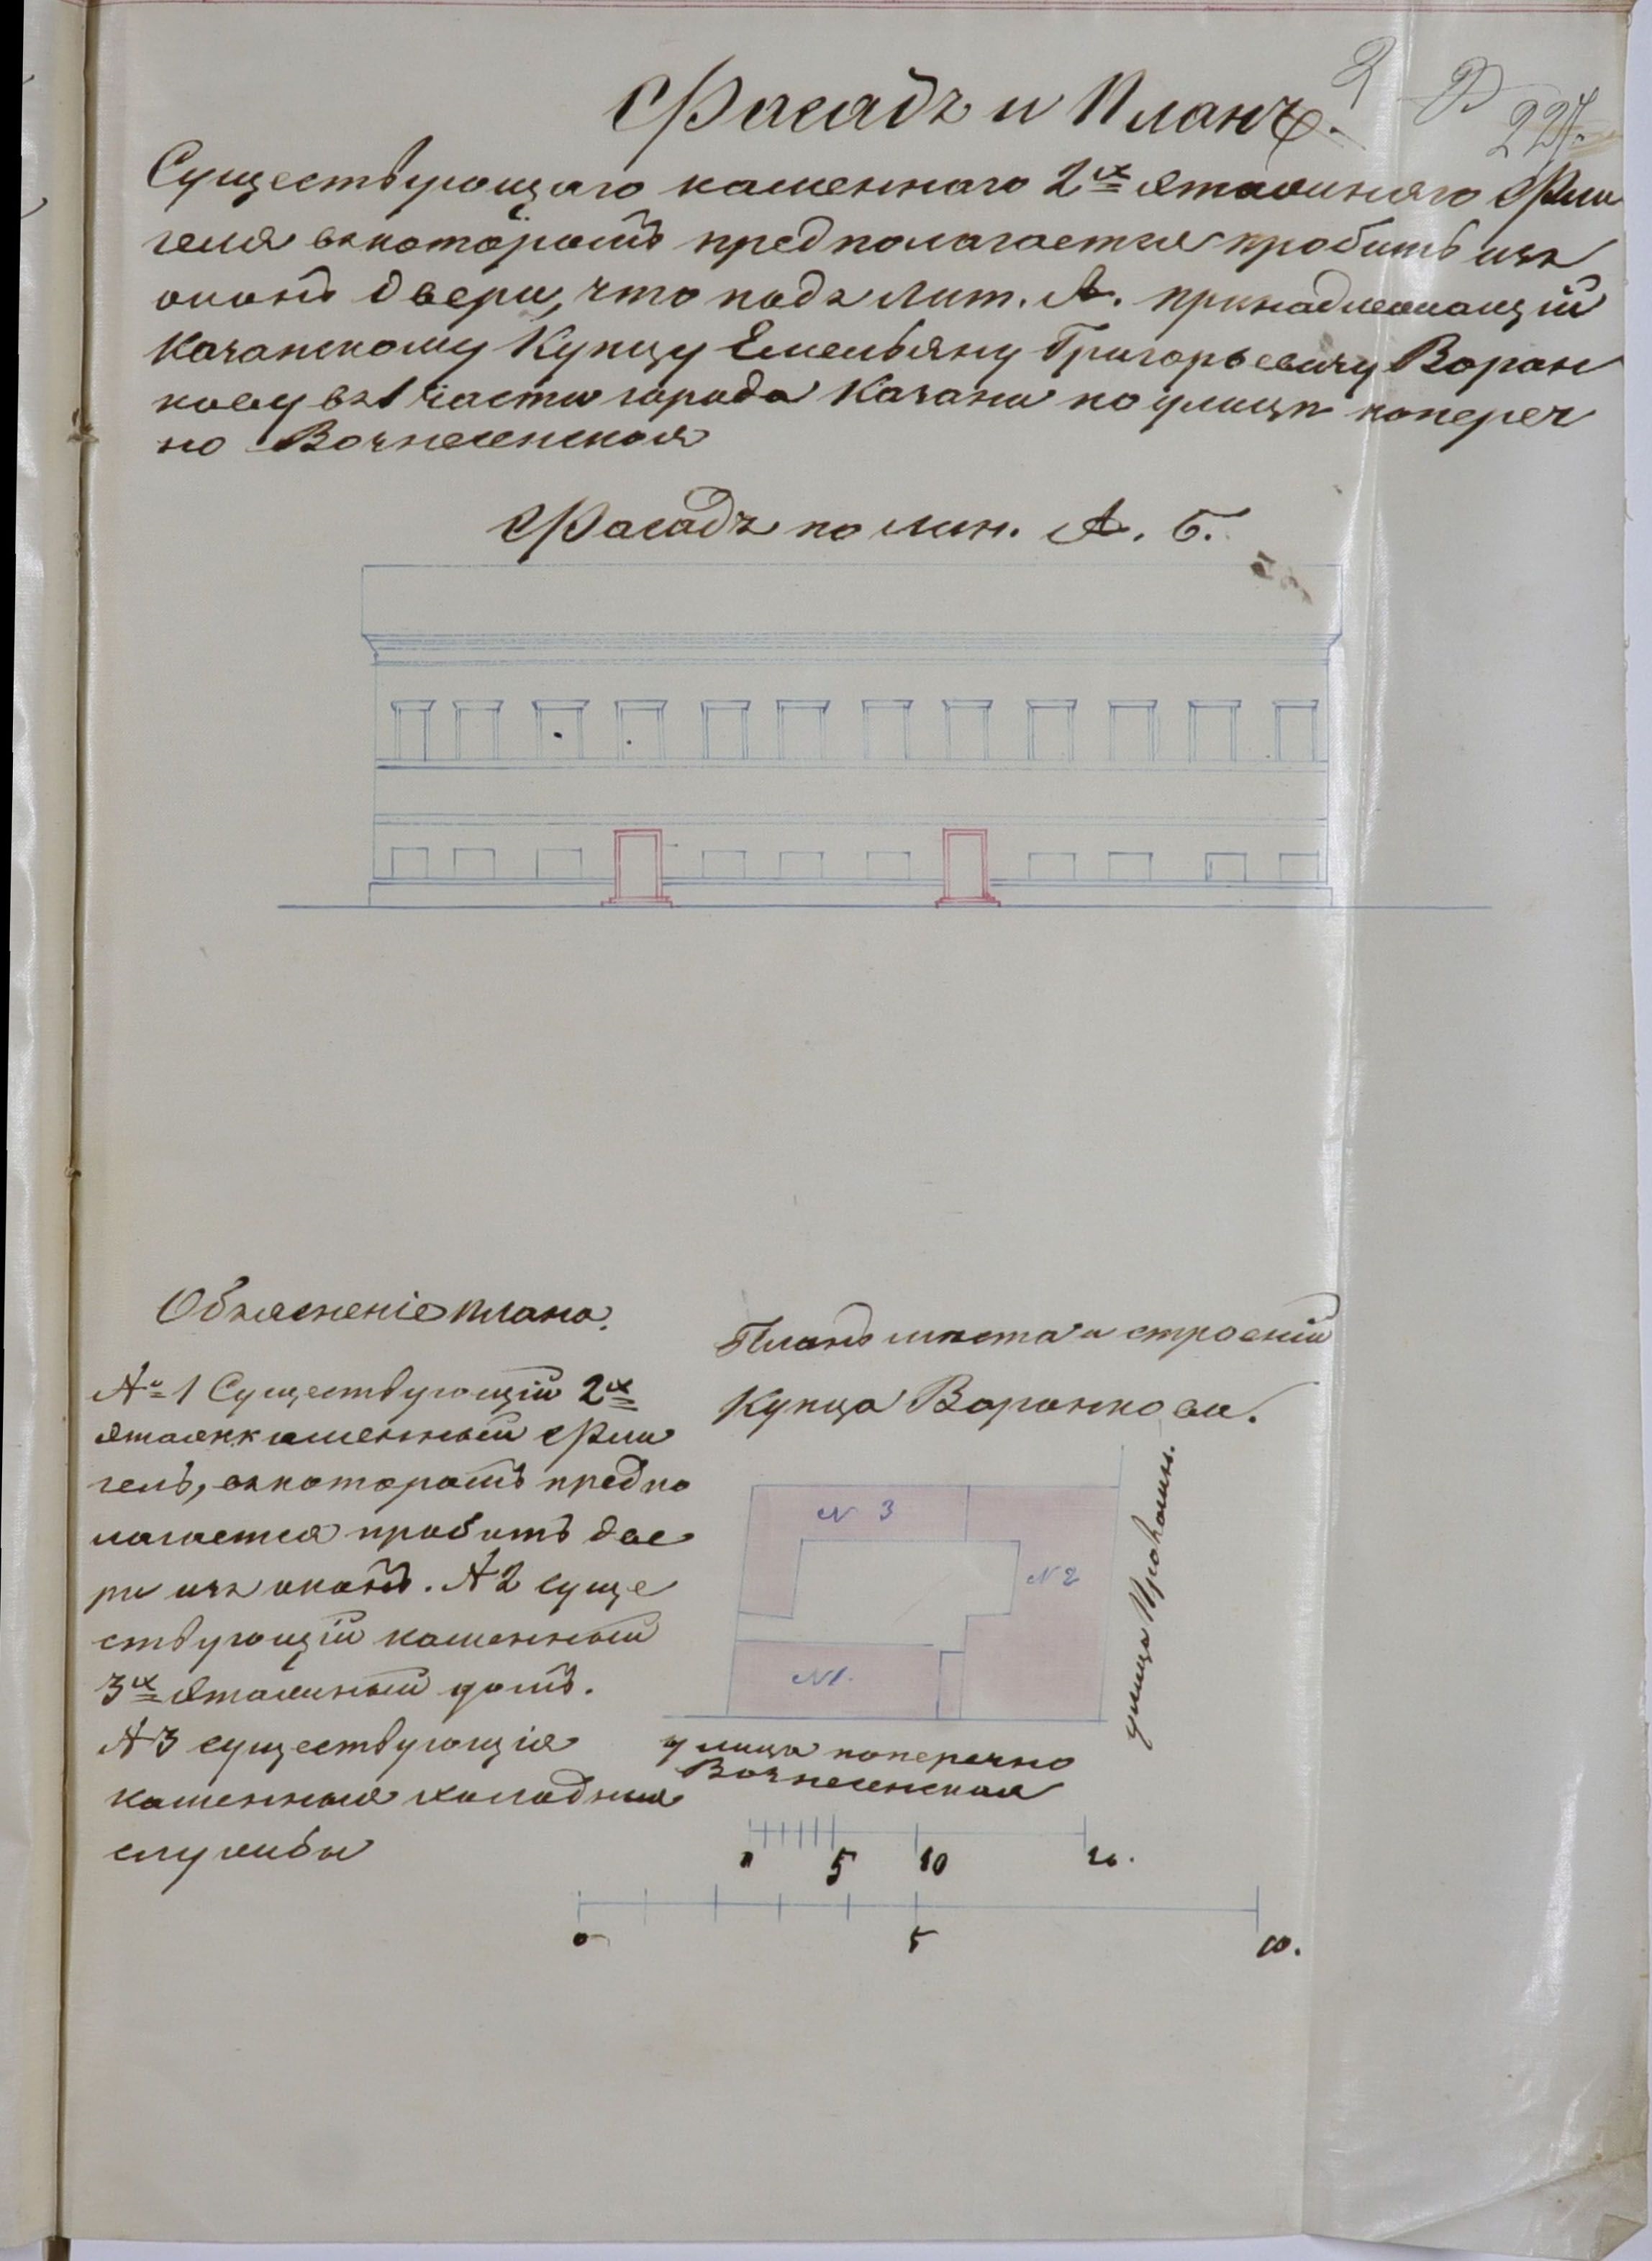 Фасадъ и Планъ.
227.
Существующаго каменнаго 2хъ этажнаго Фли
геля въ которомъ предполагается пробить изъ
оконъ двери, что подъ Лит. А. принадлежащій
Казанскому Купцу Емельяну Григорьевичу Ворон
кову въ 1 части города Казани по улицѣ попереч
но Вознесенская
Фасадъ по лин. А. Б.
Объясненіе плана.
№ 1 Существующій 2хъ
этажн. каменный Фли
гель, въ которомъ предпо
лагается пробить две
ри изъ оконъ. № 2 суще
ствующій каменный
3хъ этажный домъ.
№ 3 существующія
каменныя холодныя
службы
Планъ мѣста и строеній
Купца Воронкова.
N 3
N 2
N 1.
улица поперечно
Вознесенская
0 5 10 20.
0 5 10.